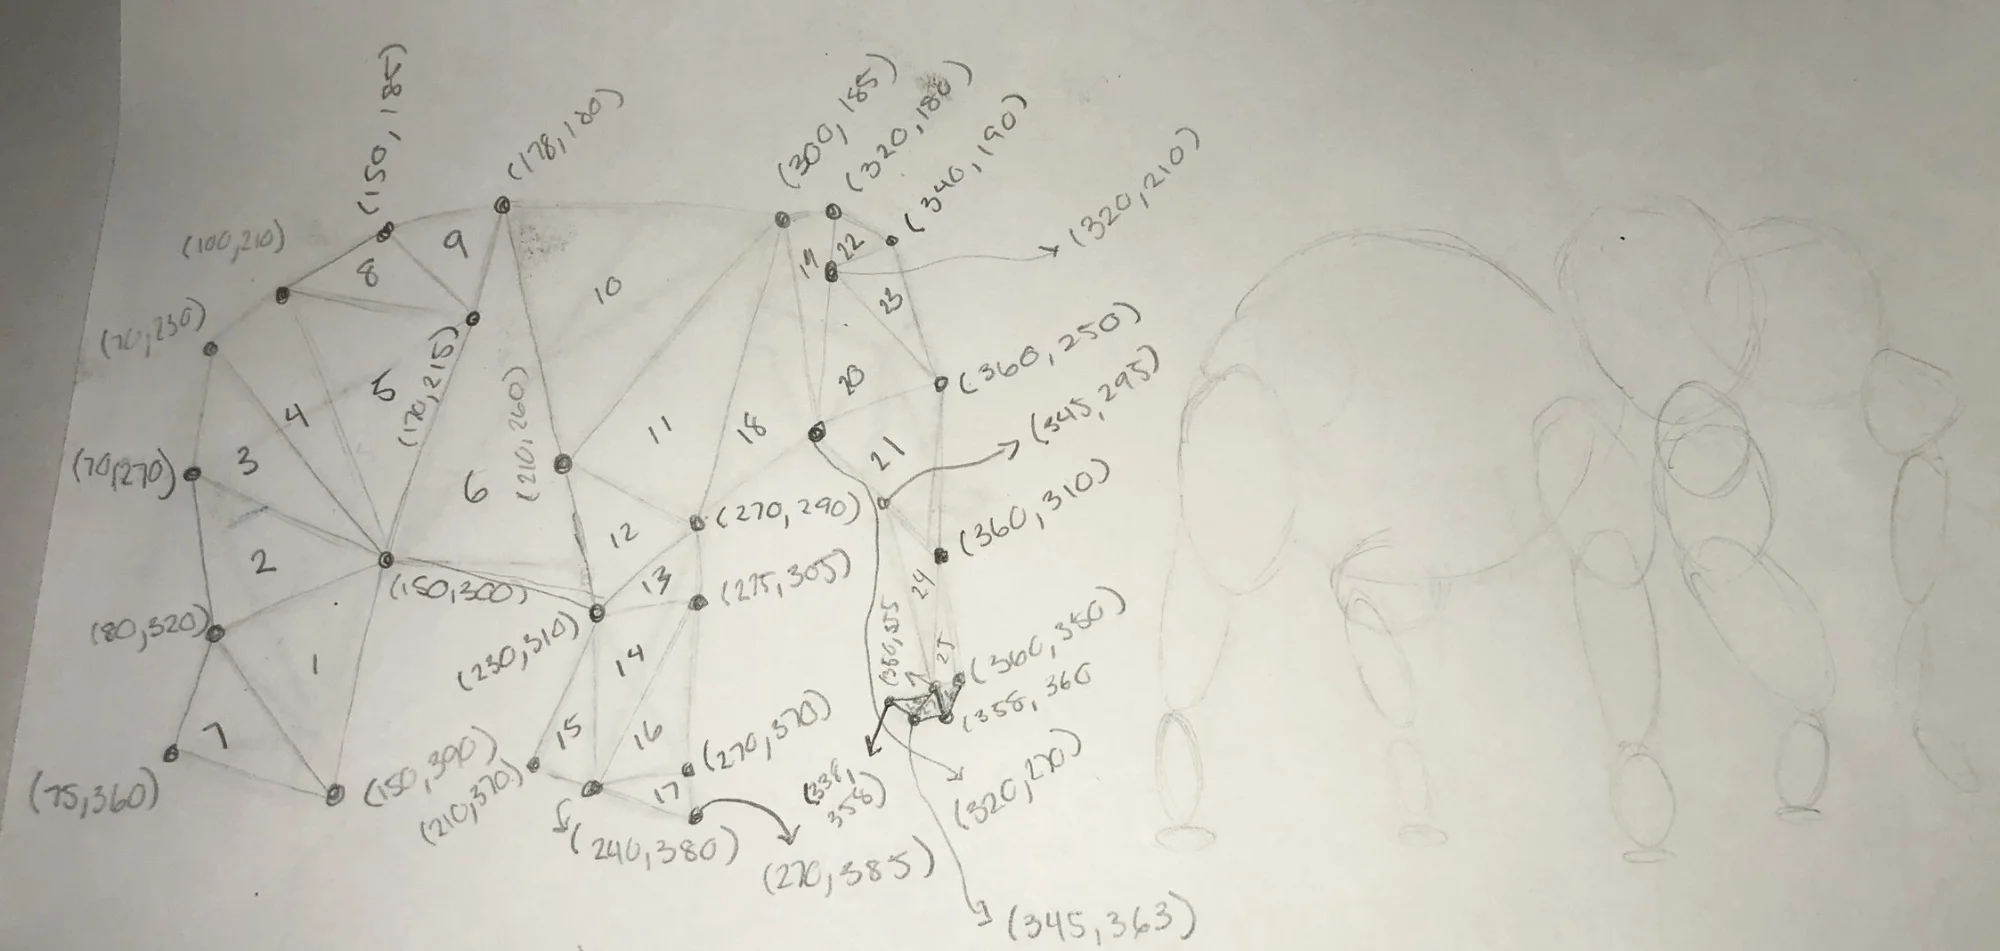 (150, 185)
(178, 180)
(300, 185)
(320, 180)
(340, 190)
(320, 210)
(100, 210)
9
8
19
22
10
23
(70, 230)
(170, 215)
(360, 250)
(345, 295)
5
4
20
(210, 260)
11
18
3
(70, 270)
21
6
(270, 290)
(360, 310)
12
2
(150, 300)
13
(275, 305)
24
(80, 320)
(230, 310)
14
25
(360, 350)
1
(358, 360
7
15
16
(270, 370)
(75, 360)
(150, 390)
(210, 370)
17
(338,
358)
(320, 270)
(240, 380)
(270, 385)
(345, 363)